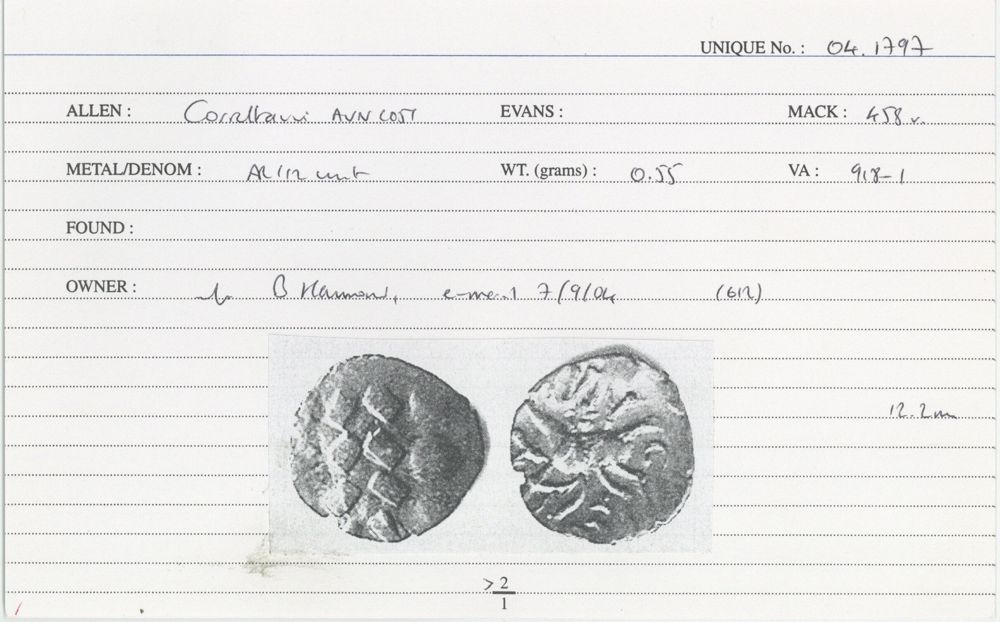 UNIQUE No. : 04.1797
ALLEN : Corieltauvi AVN COST EVANS : MACK : 458 v.
METAL/DENOM : AR/12 unit WT. (grams) : 0.55 VA : 918-1
FOUND :
OWNER : B Hammond, e-mail 7/9/04 (612)
12.2m
> 2
1